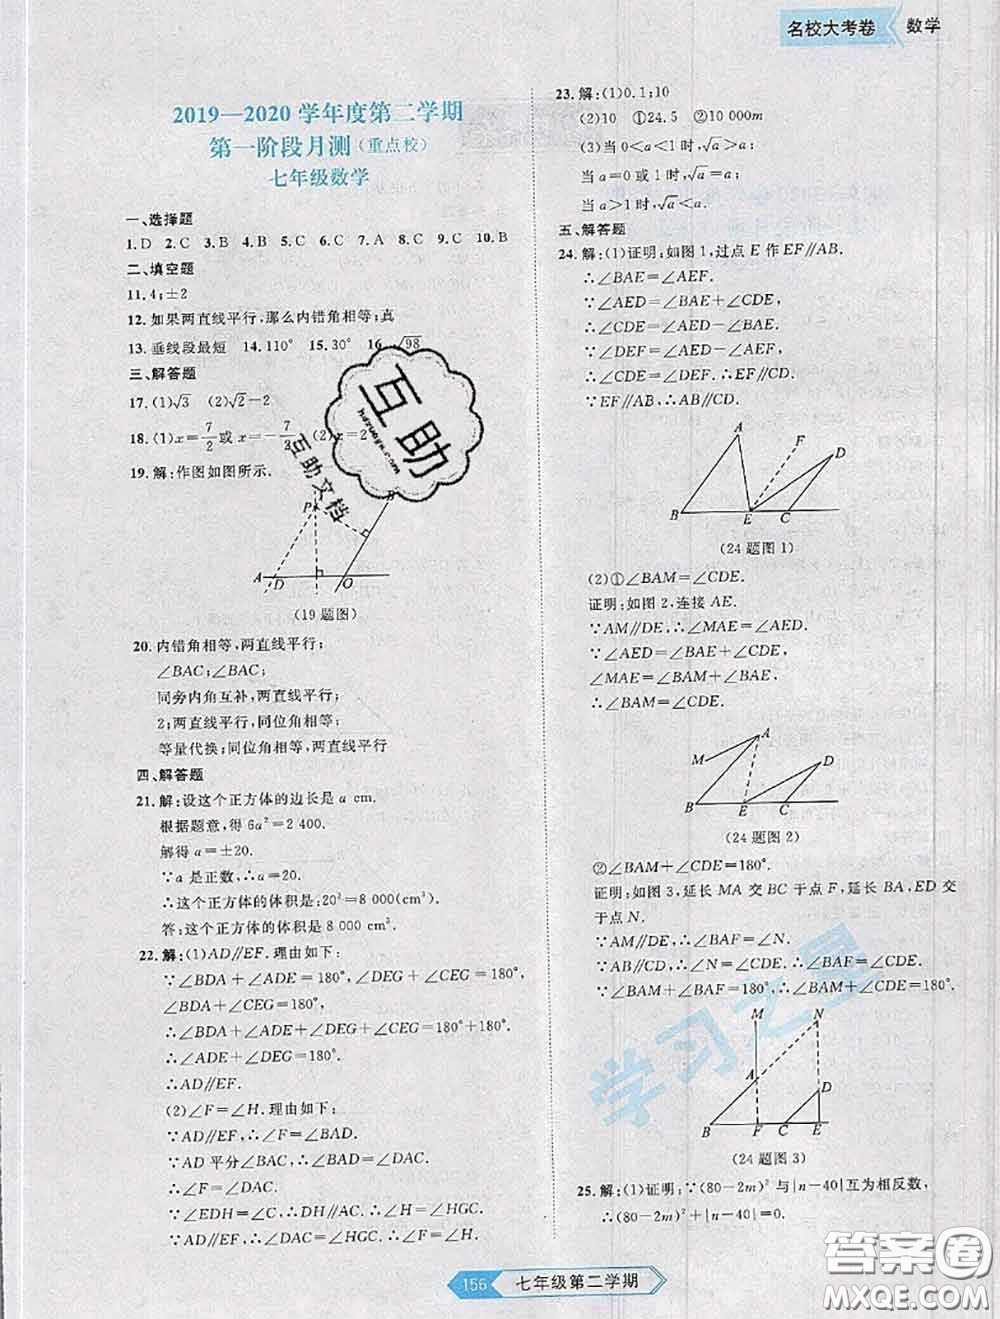 名校大考卷 数学
2019—2020 学年度第二学期
第一阶段月测(重点校)
七年级数学
一、选择题
1.D 2.C 3.B 4.B 5.C 6.C 7.A 8.C 9.C 10.B
二、填空题
11.4;±2
12.如果两直线平行,那么内错角相等;真
13.垂线段最短 14.110° 15.30° 16. √98
三、解答题
17.(1)√3 (2)√2-2
18.(1)x=7/2或x=-7/2 (2)x=2
19.解:作图如图所示.
P
B
A D O
(19 题图)
20.内错角相等,两直线平行;
∠BAC;∠BAC;
同旁内角互补,两直线平行;
2;两直线平行,同位角相等;
等量代换;同位角相等,两直线平行
四、解答题
21.解:设这个正方体的边长是 a cm.
根据题意,得 6a²=2 400.
解得 a=±20.
∵a 是正数,∴a=20.
∴这个正方体的体积是:20³=8 000(cm³).
答:这个正方体的体积是 8 000 cm³.
22.解:(1)AD∥EF.理由如下:
∵∠BDA+∠ADE=180°,∠DEG+∠CEG=180°,
∠BDA+∠CEG=180°,
∴∠BDA+∠ADE+∠DEG+∠CEG=180°+180°.
∴∠ADE+∠DEG=180°.
∴AD∥EF.
(2)∠F=∠H.理由如下:
∵AD∥EF,∴∠F=∠BAD.
∵AD 平分∠BAC,∴∠BAD=∠DAC.
∴∠F=∠DAC.
∵∠EDH=∠C,∴DH∥AC.∴∠H=∠HGC.
∵AD∥EF,∴∠DAC=∠HGC.∴∠F=∠H.
23.解:(1)0.1;10
(2)10 ①24.5 ②10 000
(3)当 0<a<1 时,√a>a.
当 a=0 或 1 时,√a=a.
当 a>1 时,√a<a.
五、解答题
24.解:(1)证明:如图 1,过点 E 作 EF∥AB.
∴∠BAE=∠AEF.
∵∠AED=∠BAE+∠CDE,
∴∠CDE=∠AED-∠BAE.
∵∠DEF=∠AED-∠AEF,
∴∠CDE=∠DEF.∴EF∥CD.
∵EF∥AB,∴AB∥CD.
A F D
B E C
(24 题图 1)
(2)①∠BAM=∠CDE.
证明:如图 2,连接 AE.
∵AM∥DE,∴∠MAE=∠AED.
∵∠AED=∠BAE+∠CDE,
∠MAE=∠BAM+∠BAE,
∴∠BAM=∠CDE.
M A D
B E C
(24 题图 2)
②∠BAM+∠CDE=180°.
证明:如图 3,延长 MA 交 BC 于点 F,延长 BA,ED 交
于点 N.
∵AM∥DE,∴∠BAF=∠N.
∵AB∥CD,∴∠N=∠CDE.∴∠BAF=∠CDE.
∵∠BAM+∠BAF=180°,∴∠BAM+∠CDE=180°.
M N
A D
B F C E
(24 题图 3)
25.解:(1)证明:∵(80-2m)²与|n-40|互为相反数,
∴(80-2m)²+|n-40|=0.
156 七年级第二学期
互助
huzuoyw.com
互助文档
学习之星
答案圈
MXQE.COM